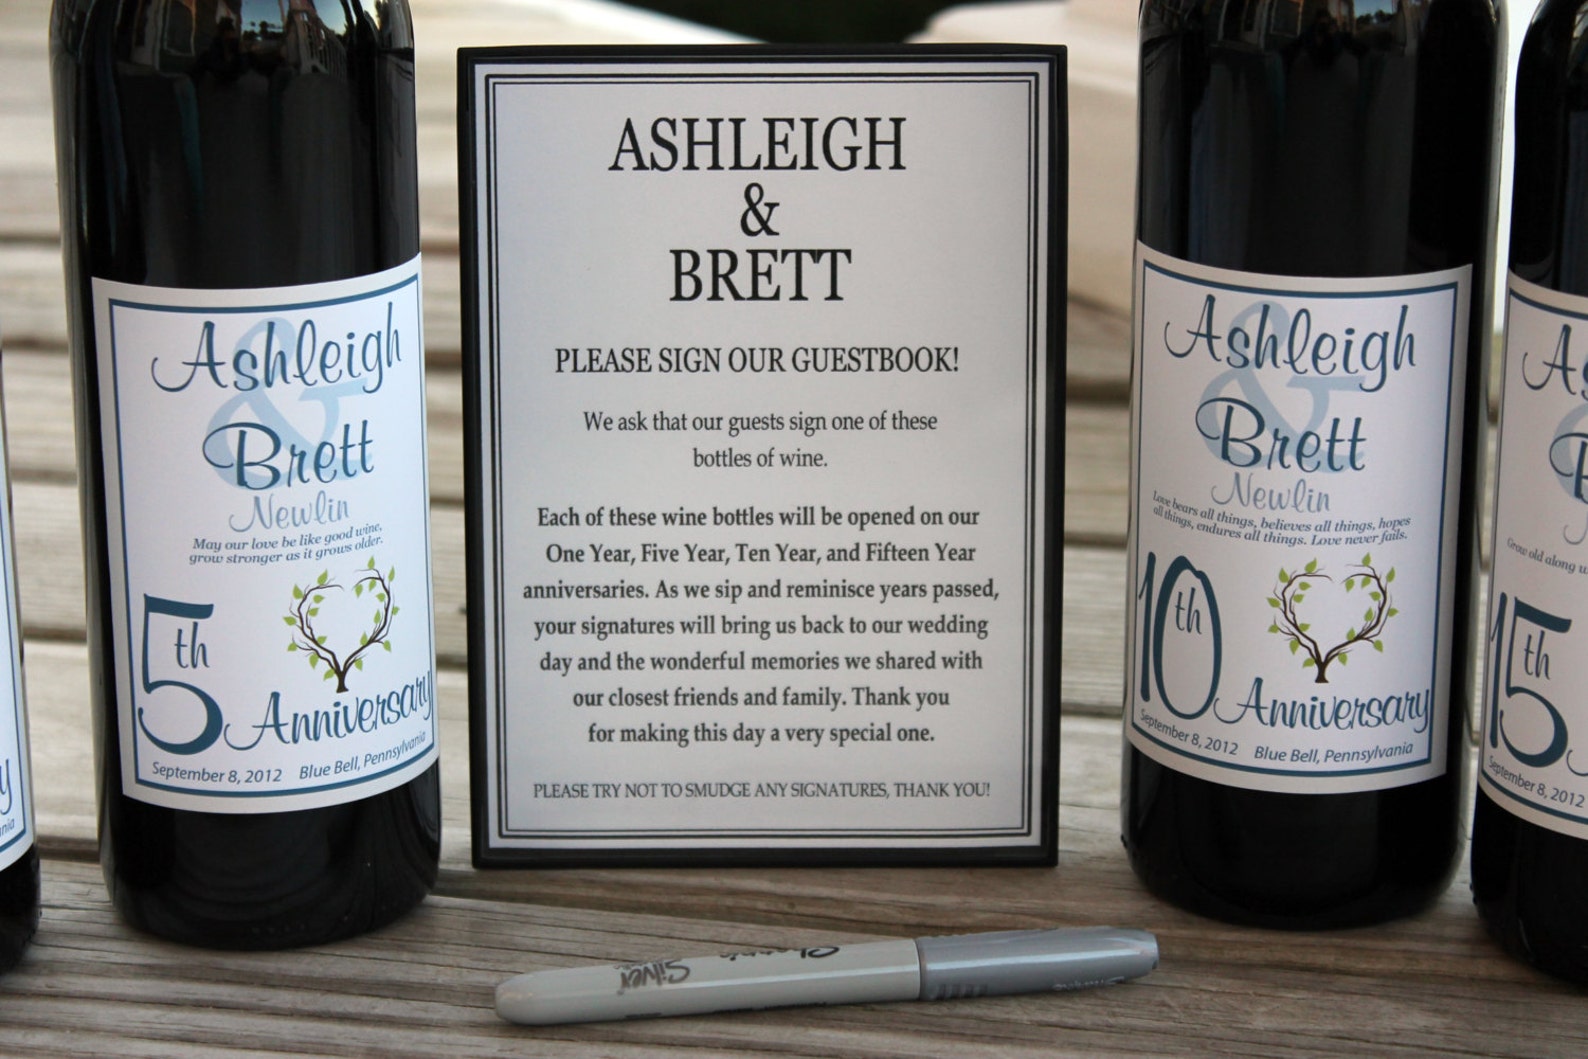 y
nia
Ashleigh
&
Brett
Newlin
May our love be like good wine,
grow stronger as it grows older.
5th
Anniversary
September 8, 2012 Blue Bell, Pennsylvania
ASHLEIGH
&
BRETT
PLEASE SIGN OUR GUESTBOOK!
We ask that our guests sign one of these
bottles of wine.
Each of these wine bottles will be opened on our
One Year, Five Year, Ten Year, and Fifteen Year
anniversaries. As we sip and reminisce years passed,
your signatures will bring us back to our wedding
day and the wonderful memories we shared with
our closest friends and family. Thank you
for making this day a very special one.
PLEASE TRY NOT TO SMUDGE ANY SIGNATURES, THANK YOU!
Ashleigh
&
Brett
Newlin
Love bears all things, believes all things, hopes
all things, endures all things. Love never fails.
10th
Anniversary
September 8, 2012 Blue Bell, Pennsylvania
As
B
Grow old along w
15th
September 8, 2012
Sharpie
Silver